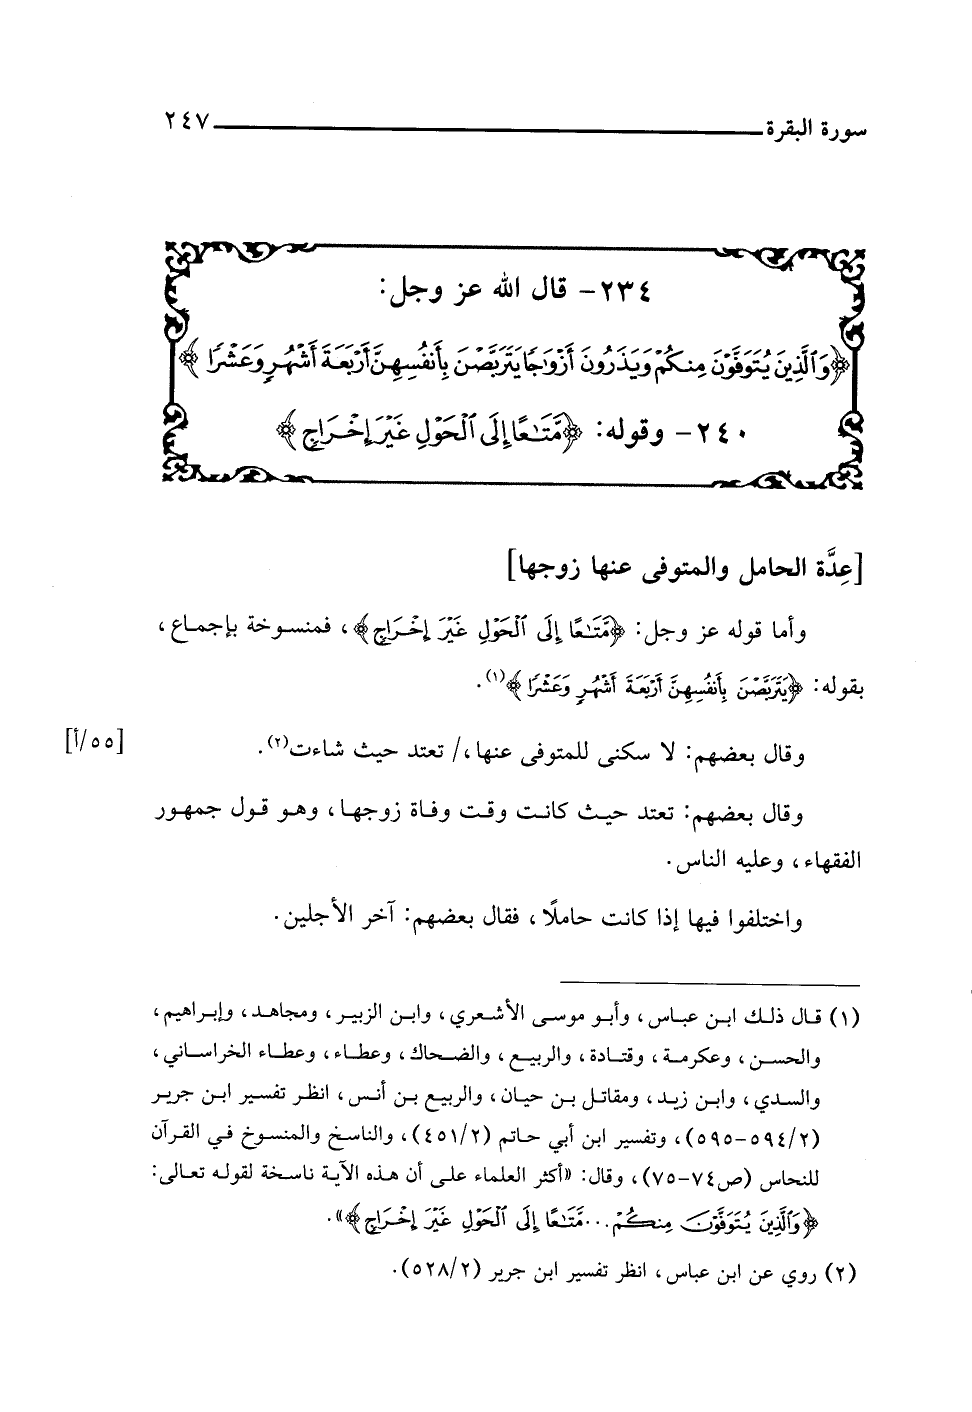 سورة البقرة ٢٤٧
٢٣٤- قال الله عز وجل:
﴿وَٱلَّذِينَ يُتَوَفَّوْنَ مِنكُمْ وَيَذَرُونَ أَزْوَٰجًا يَتَرَبَّصْنَ بِأَنفُسِهِنَّ أَرْبَعَةَ أَشْهُرٍ وَعَشْرًا﴾
٢٤٠- وقوله: ﴿مَّتَٰعًا إِلَى ٱلْحَوْلِ غَيْرَ إِخْرَاجٍ﴾
[عِدَّة الحامل والمتوفى عنها زوجها]
وأما قوله عز وجل: ﴿مَّتَٰعًا إِلَى ٱلْحَوْلِ غَيْرَ إِخْرَاجٍ﴾، فمنسوخة بإجماع،
بقوله: ﴿يَتَرَبَّصْنَ بِأَنفُسِهِنَّ أَرْبَعَةَ أَشْهُرٍ وَعَشْرًا﴾(١).
وقال بعضهم: لا سكنى للمتوفى عنها،/ تعتد حيث شاءت(٢). [٥٥/أ]
وقال بعضهم: تعتد حيث كانت وقت وفاة زوجها، وهو قول جمهور
الفقهاء، وعليه الناس.
واختلفوا فيها إذا كانت حاملًا، فقال بعضهم: آخر الأجلين.
(١) قال ذلك ابن عباس، وأبو موسى الأشعري، وابن الزبير، ومجاهد، وإبراهيم،
والحسن، وعكرمة، وقتادة، والربيع، والضحاك، وعطاء، وعطاء الخراساني،
والسدي، وابن زيد، ومقاتل بن حيان، والربيع بن أنس، انظر تفسير ابن جرير
(٢/ ٥٩٤-٥٩٥)، وتفسير ابن أبي حاتم (٢/ ٤٥١)، والناسخ والمنسوخ في القرآن
للنحاس (ص٧٤-٧٥)، وقال: «أكثر العلماء على أن هذه الآية ناسخة لقوله تعالى:
﴿وَٱلَّذِينَ يُتَوَفَّوْنَ مِنكُمْ...مَّتَٰعًا إِلَى ٱلْحَوْلِ غَيْرَ إِخْرَاجٍ﴾».
(٢) روي عن ابن عباس، انظر تفسير ابن جرير (٢/ ٥٢٨).